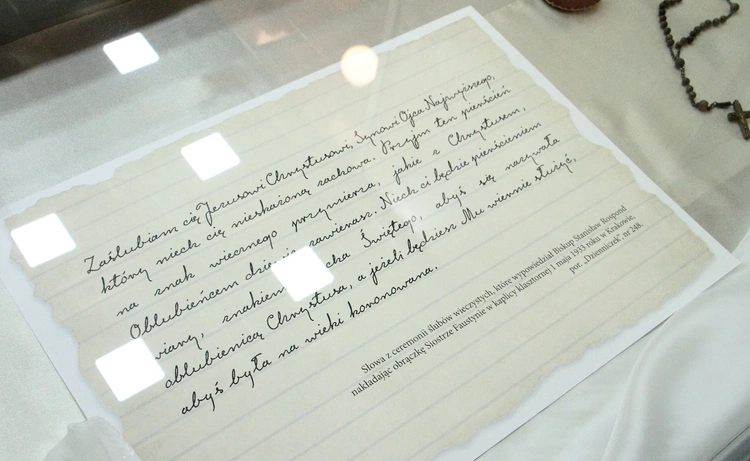 Zaślubiam cię Jezusowi Chrystusowi, Synowi Ojca Najwyższego,
który niech cię nieskażoną zachowa. Przyjm ten pierścień
na znak wiecznego przymierza, jakie z Chrystusem,
Oblubieńcem zawierasz. Niech ci będzie pierścieniem
wiary, znakiem Świętego, abyś się nazywała
oblubienicą Chrystusa, a jeżeli będziesz Mu wiernie służyć,
abyś była na wieki koronowana.
Słowa z ceremonii ślubów wieczystych, które wypowiedział Biskup Stanisław Rospond
nakładając obrączkę Siostrze Faustynie w kaplicy klasztornej 1 maja 1933 roku w Krakowie,
por. „Dzienniczek”, nr 248.